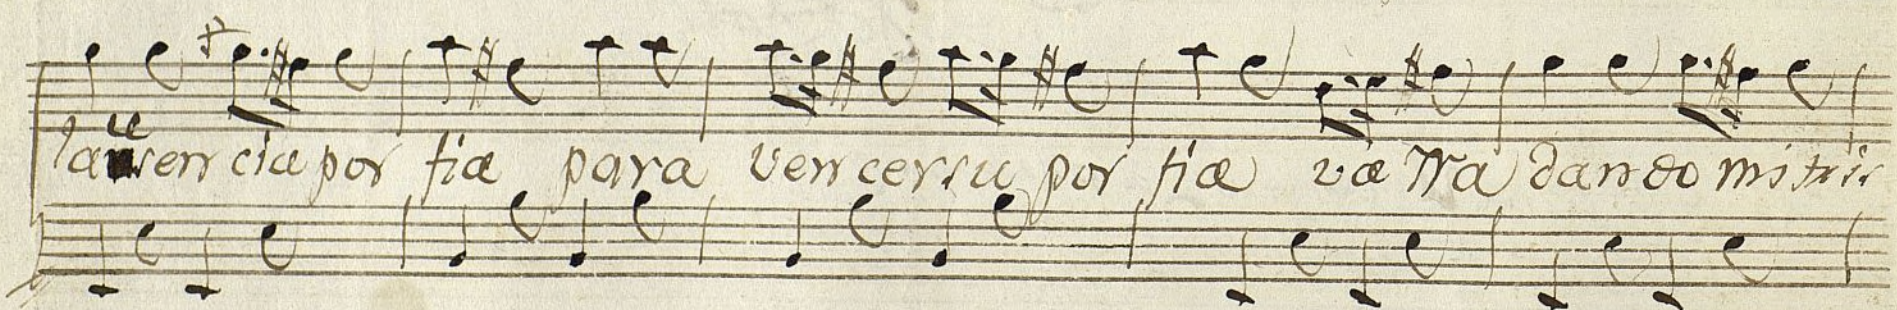 la sencia por fia para vencer su por fia va dando mi tris